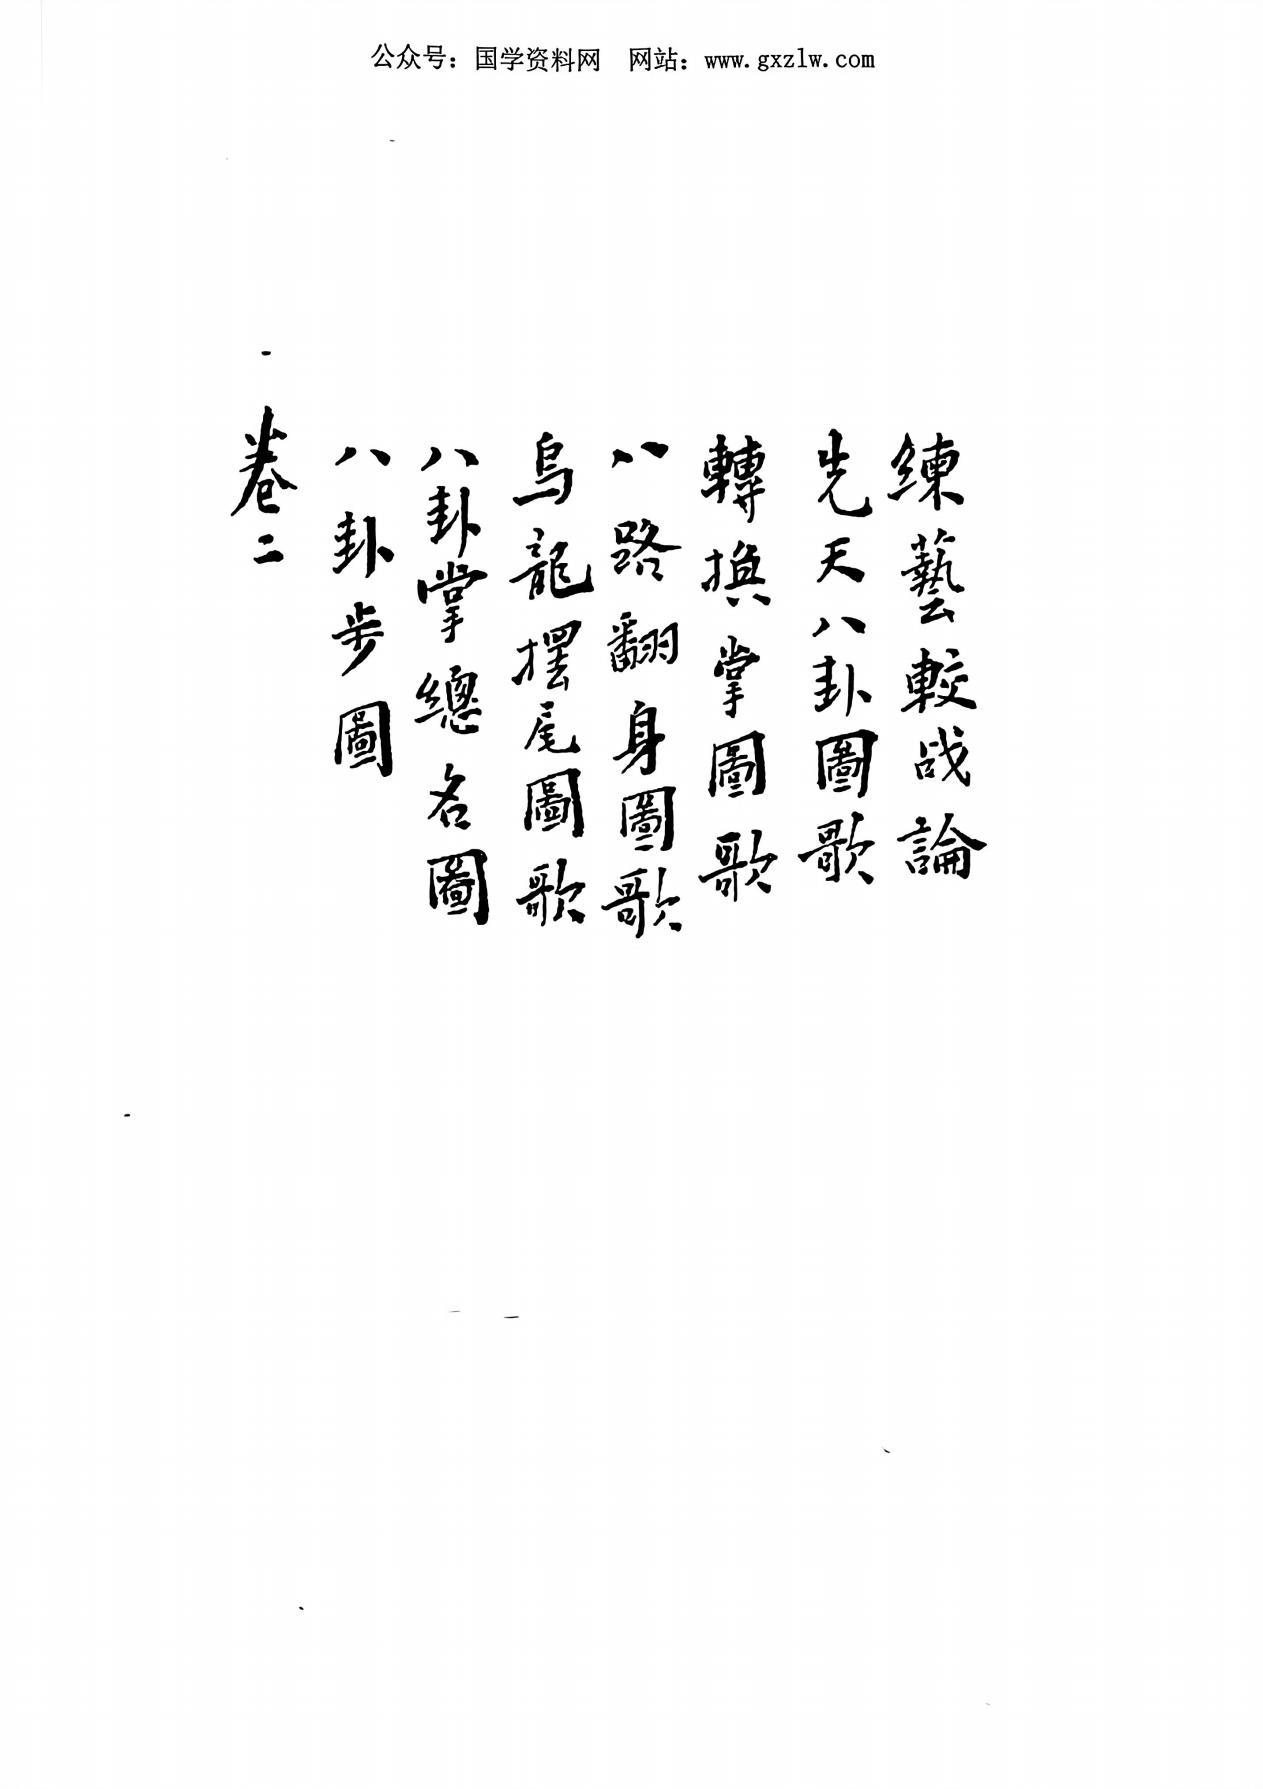 公众号：国学资料网　网站：www.gxzlw.com
練藝較战論
先天八卦圖歌
轉換掌圖歌
八路翻身圖歌
烏龍摆尾圖歌
八卦掌總名圖
八卦步圖
卷二